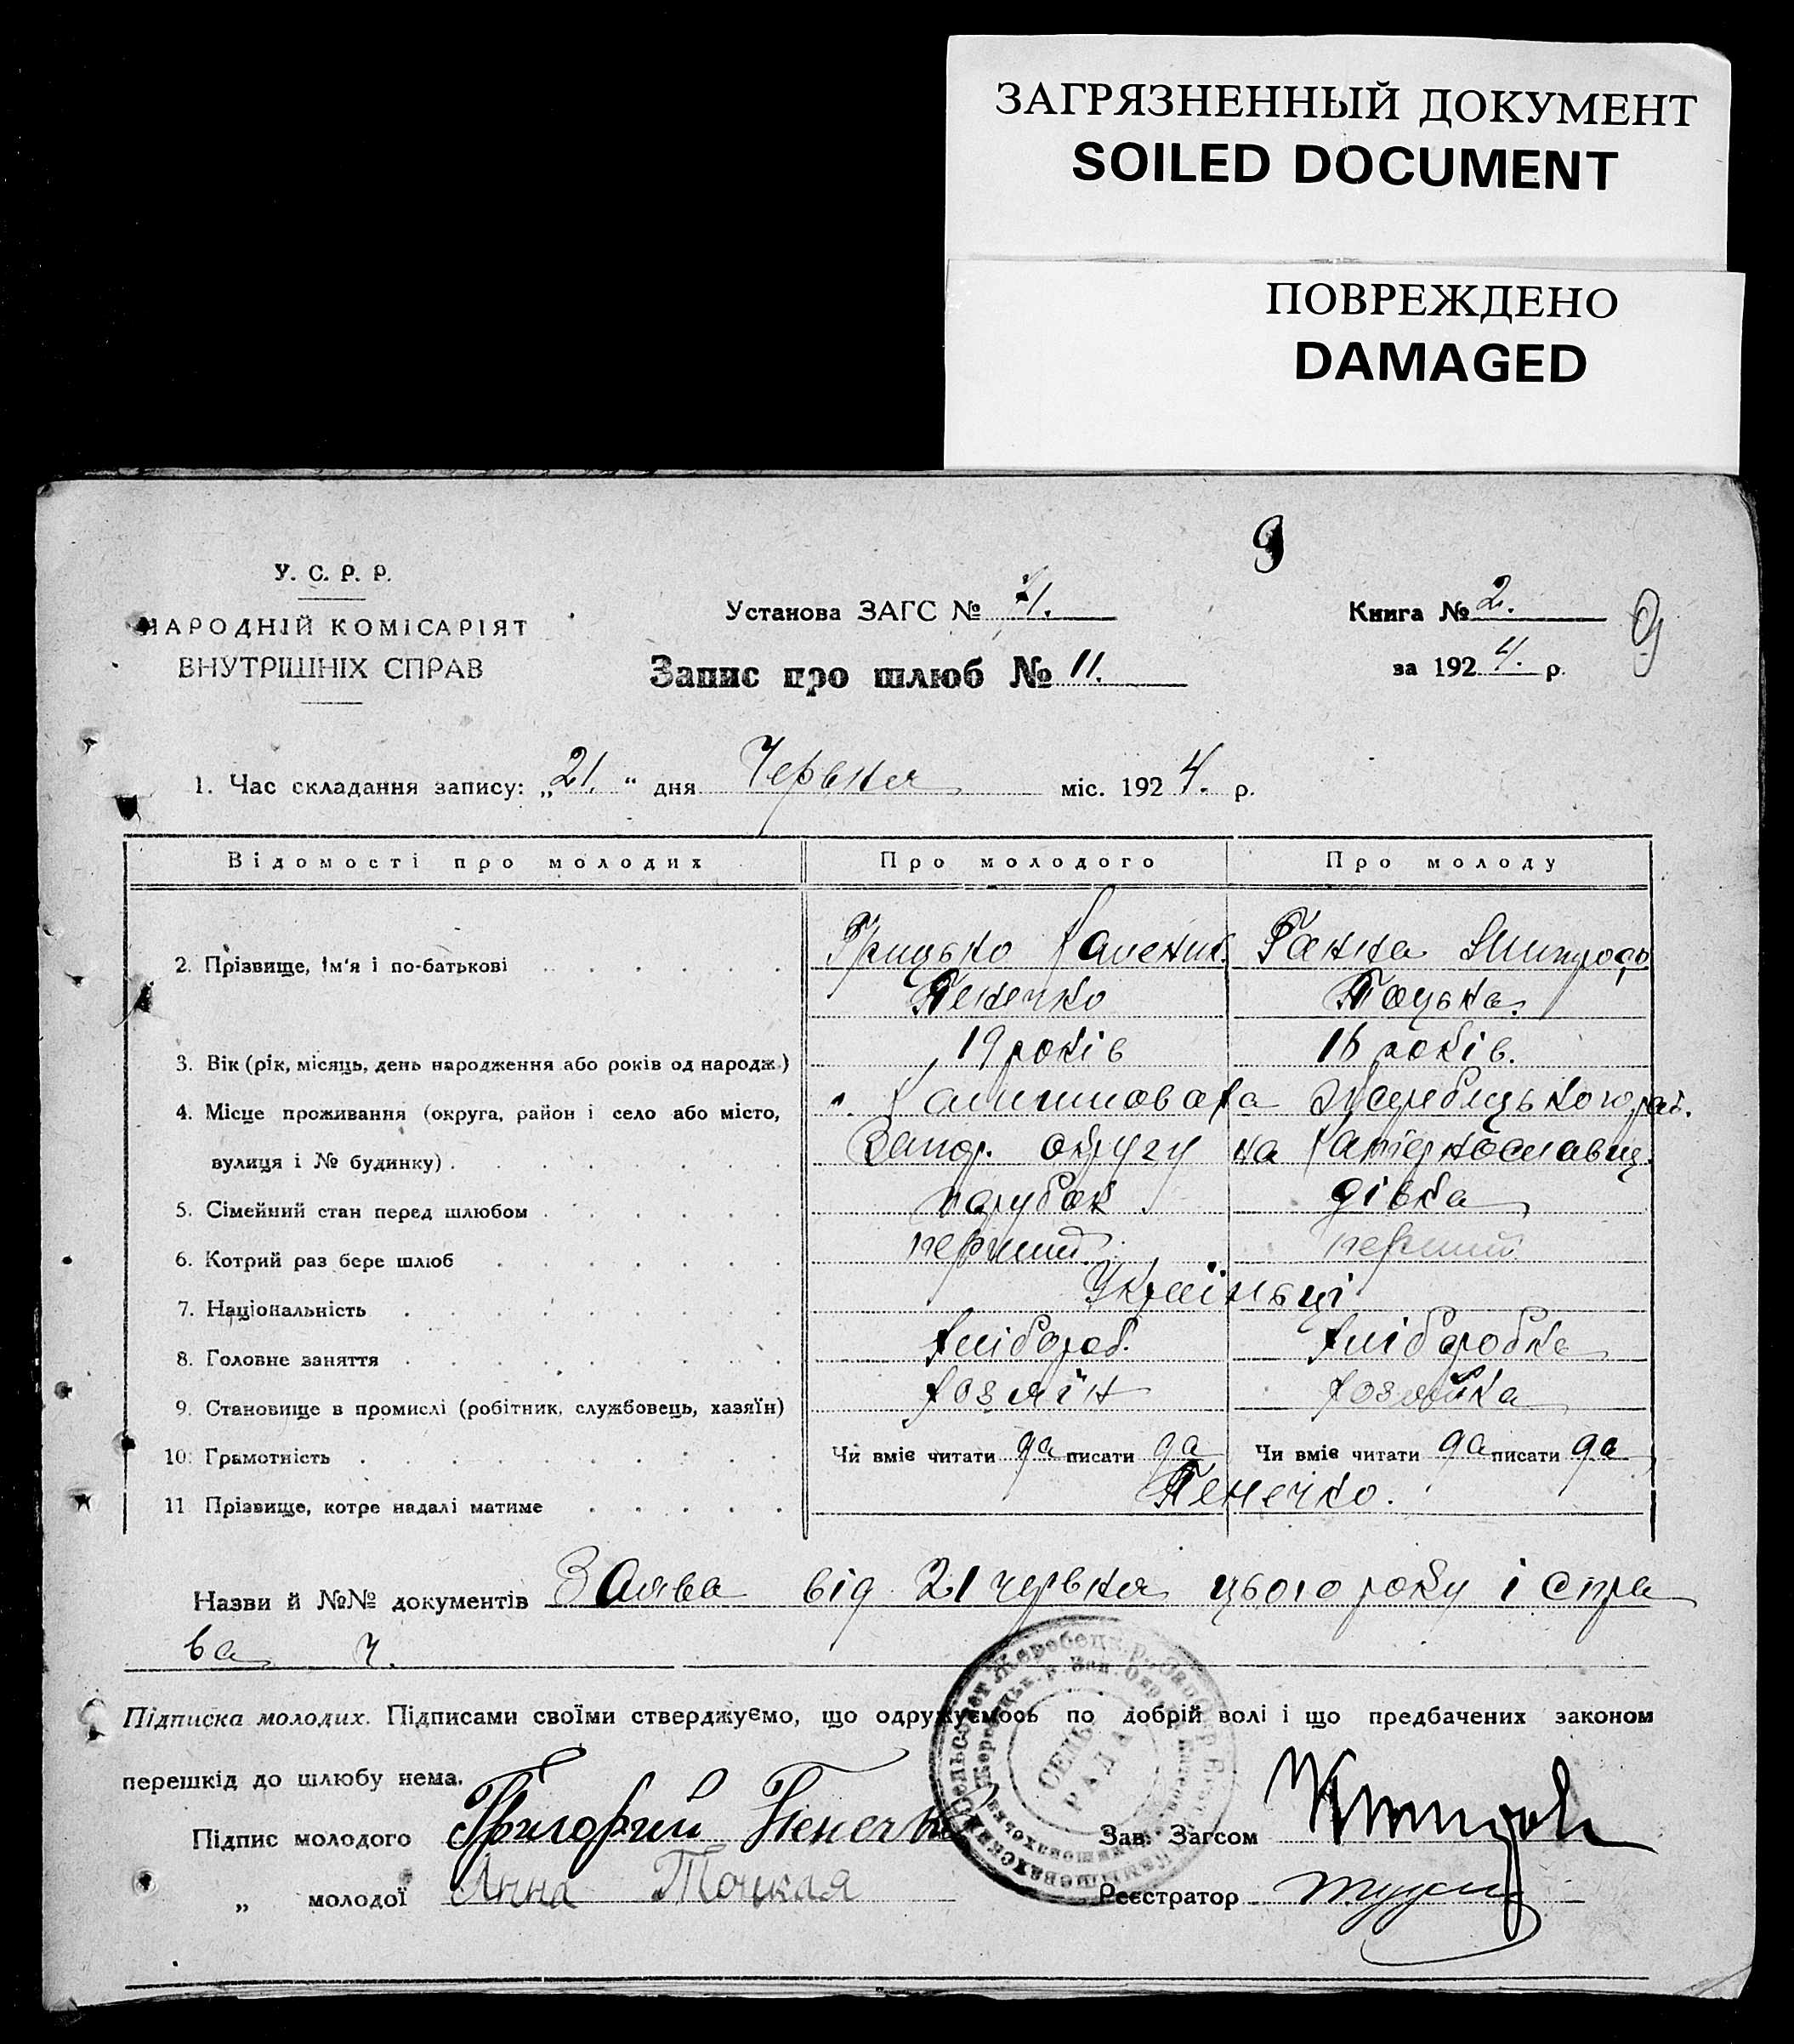 ЗАГРЯЗНЕННЫЙ ДОКУМЕНТ
SOILED DOCUMENT
ПОВРЕЖДЕНО
DAMAGED
9
У. С. Р. Р.
НАРОДНІЙ КОМІСАРІЯТ
ВНУТРІШНІХ СПРАВ
Установа ЗАГС № 71.
Запис про шлюб № 11.
Книга № 2.
за 1924. р.
9
1. Час складання запису: „21.“ дня Червня міс. 1924. р.
Відомості про молодих Про молодого Про молоду
2. Прізвище, ім'я і по-батькові Грицько Ганна
Пенечко Тоцька.
3. Вік (рік, місяць, день народження або років од народж.) 19 років 16 років.
4. Місце проживання (округа, район і село або місто, Жеребецького рай.
вулиця і № будинку) Запор. округу на Катеринославщ.
5. Сімейний стан перед шлюбом парубок дівка
6. Котрий раз бере шлюб перший перший
7. Національність Україньці
8. Головне заняття хлібороб. хліборобка
9. Становище в промислі (робітник, службовець, хазяїн) хозяїн хозяйка
10. Грамотність Чи вміє читати да писати да Чи вміє читати да писати да
11 Прізвище, котре надалі матиме Пенечко.
Назви й №№ документів Заява від 21 червня цього року і спра
ва ч.
Підписка молодих. Підписами своїми стверджуємо, що одружуємось по добрій волі і що предбачених законом
перешкід до шлюбу нема.
Підпис молодого Григорий Пенечко Зав. Загсом
„ молодої Анна Тоцкая Реєстратор
СЕЛЬ
РАДА